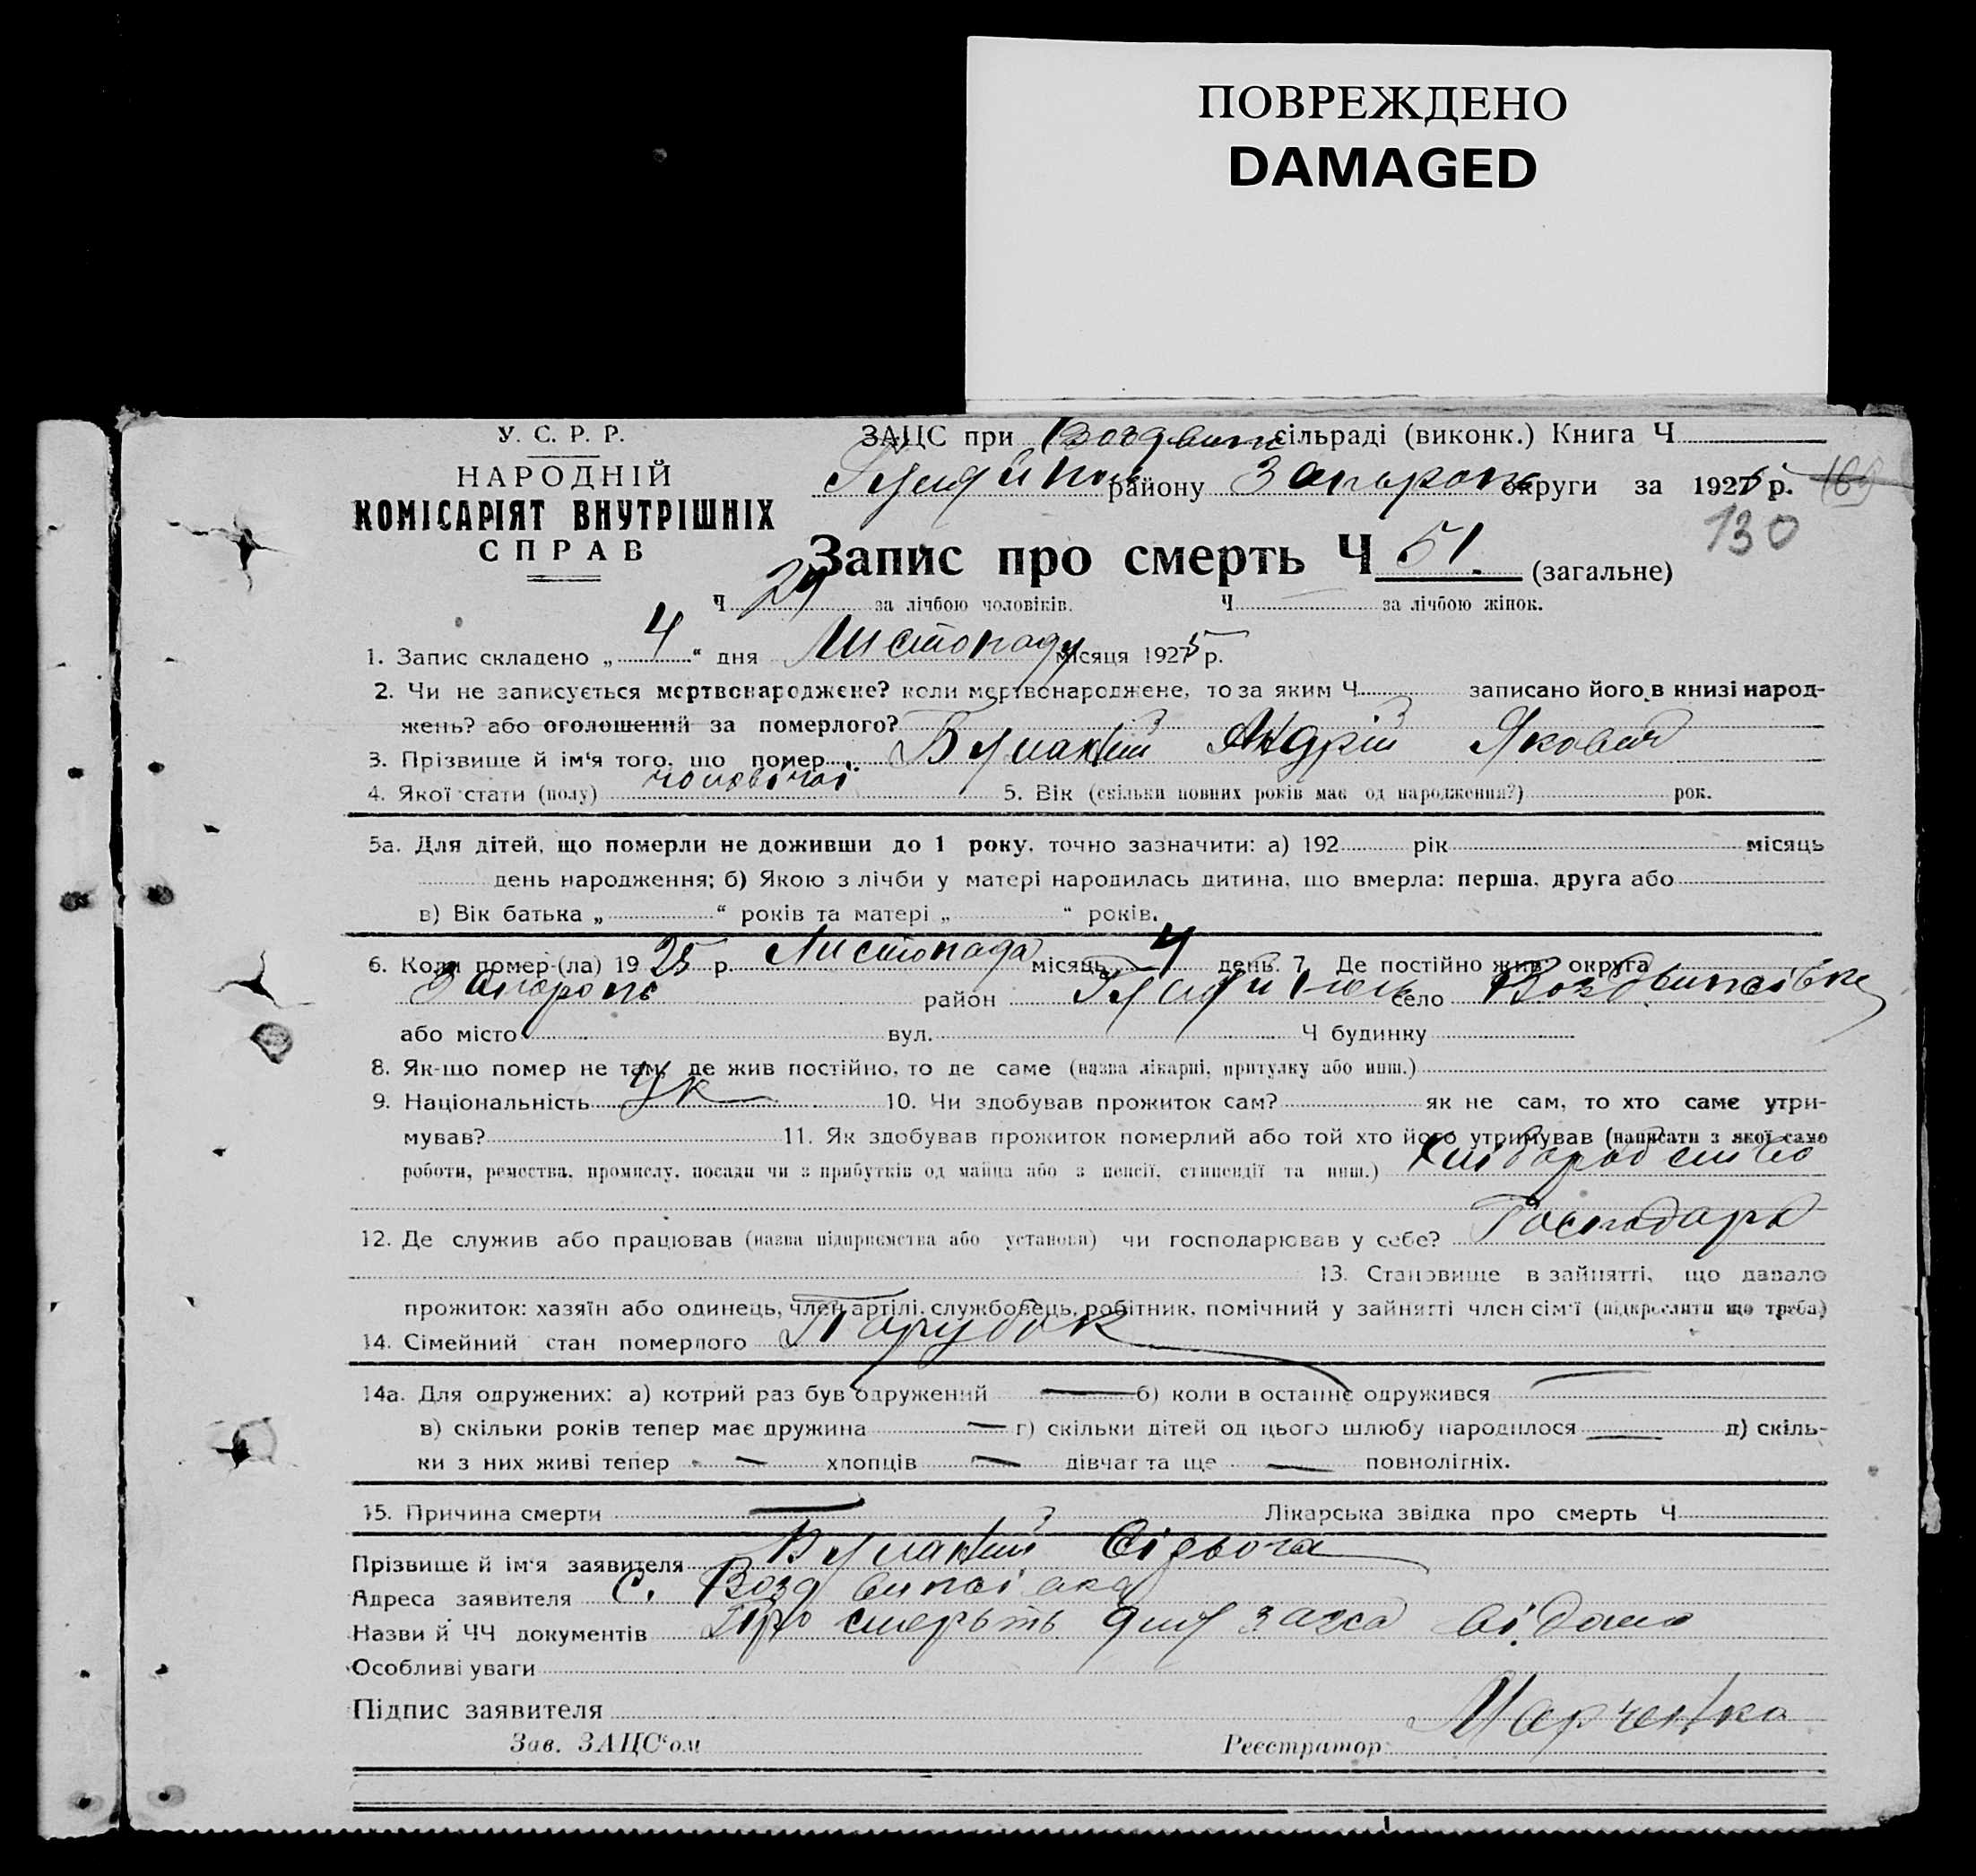 ПОВРЕЖДЕНО
DAMAGED
У. С. Р. Р.
НАРОДНІЙ
КОМІСАРІЯТ ВНУТРІШНІХ
СПРАВ
ЗАЦС при Воздвиж сільраді (виконк.) Книга Ч
району Запорож округи за 1925 р.
130
Запис про смерть Ч 51. (загальне)
Ч 29 за лічбою чоловіків. Ч за лічбою жінок.
1. Запис складено „ 4 “ дня Листопаду місяця 1925 р.
2. Чи не записується мертвонароджене? коли мертвонароджене, то за яким Ч записано його в книзі народ-
жень? або оголошений за померлого?
3. Прізвище й ім'я того, що помер Андрій Якович
4. Якої стати (полу) чоловічої 5. Вік (скільки повних років має од народження?) рок.
5а. Для дітей, що померли не доживши до 1 року, точно зазначити: а) 192 рік місяць
день народження; б) Якою з лічби у матері народилась дитина, що вмерла: перша, друга або
в) Вік батька „ “ років та матері „ “ років.
6. Коли помер-(ла) 19 25 р. Листопада місяць 4 день. 7. Де постійно жив: округа
Запорож район село Воздвижівка
або місто вул. Ч будинку
8. Як-що помер не там, де жив постійно, то де саме (назва лікарні, притулку або инш.)
9. Національність Ук 10. Чи здобував прожиток сам? як не сам, то хто саме утри-
мував? 11. Як здобував прожиток померлий або той хто його утримував (написати з якої само
роботи, ремества, промислу, посади чи з прибутків од майна або з пенсії, стипендії та инш.) Хліборобство
12. Де служив або працював (назва підприємства або установи) чи господарював у себе? Господарь
13. Становище в зайнятті, що давало
прожиток: хазяїн або одинець, член артілі, службовець, робітник, помічний у зайнятті член сім'ї (підкреслити що треба)
14. Сімейний стан померлого Парубок
14а. Для одружених: а) котрий раз був одружений — б) коли в останнє одружився —
в) скільки років тепер має дружина — г) скільки дітей од цього шлюбу народилося — д) скіль-
ки з них живі тепер — хлопців — дівчат та ще — повнолітніх.
15. Причина смерти — Лікарська звідка про смерть Ч
Прізвище й ім'я заявителя
Адреса заявителя с. Воздвижівка
Назви й ЧЧ документів Про смерть
Особливі уваги
Підпис заявителя
Зав. ЗАЦС'ом Реєстратор Марченко